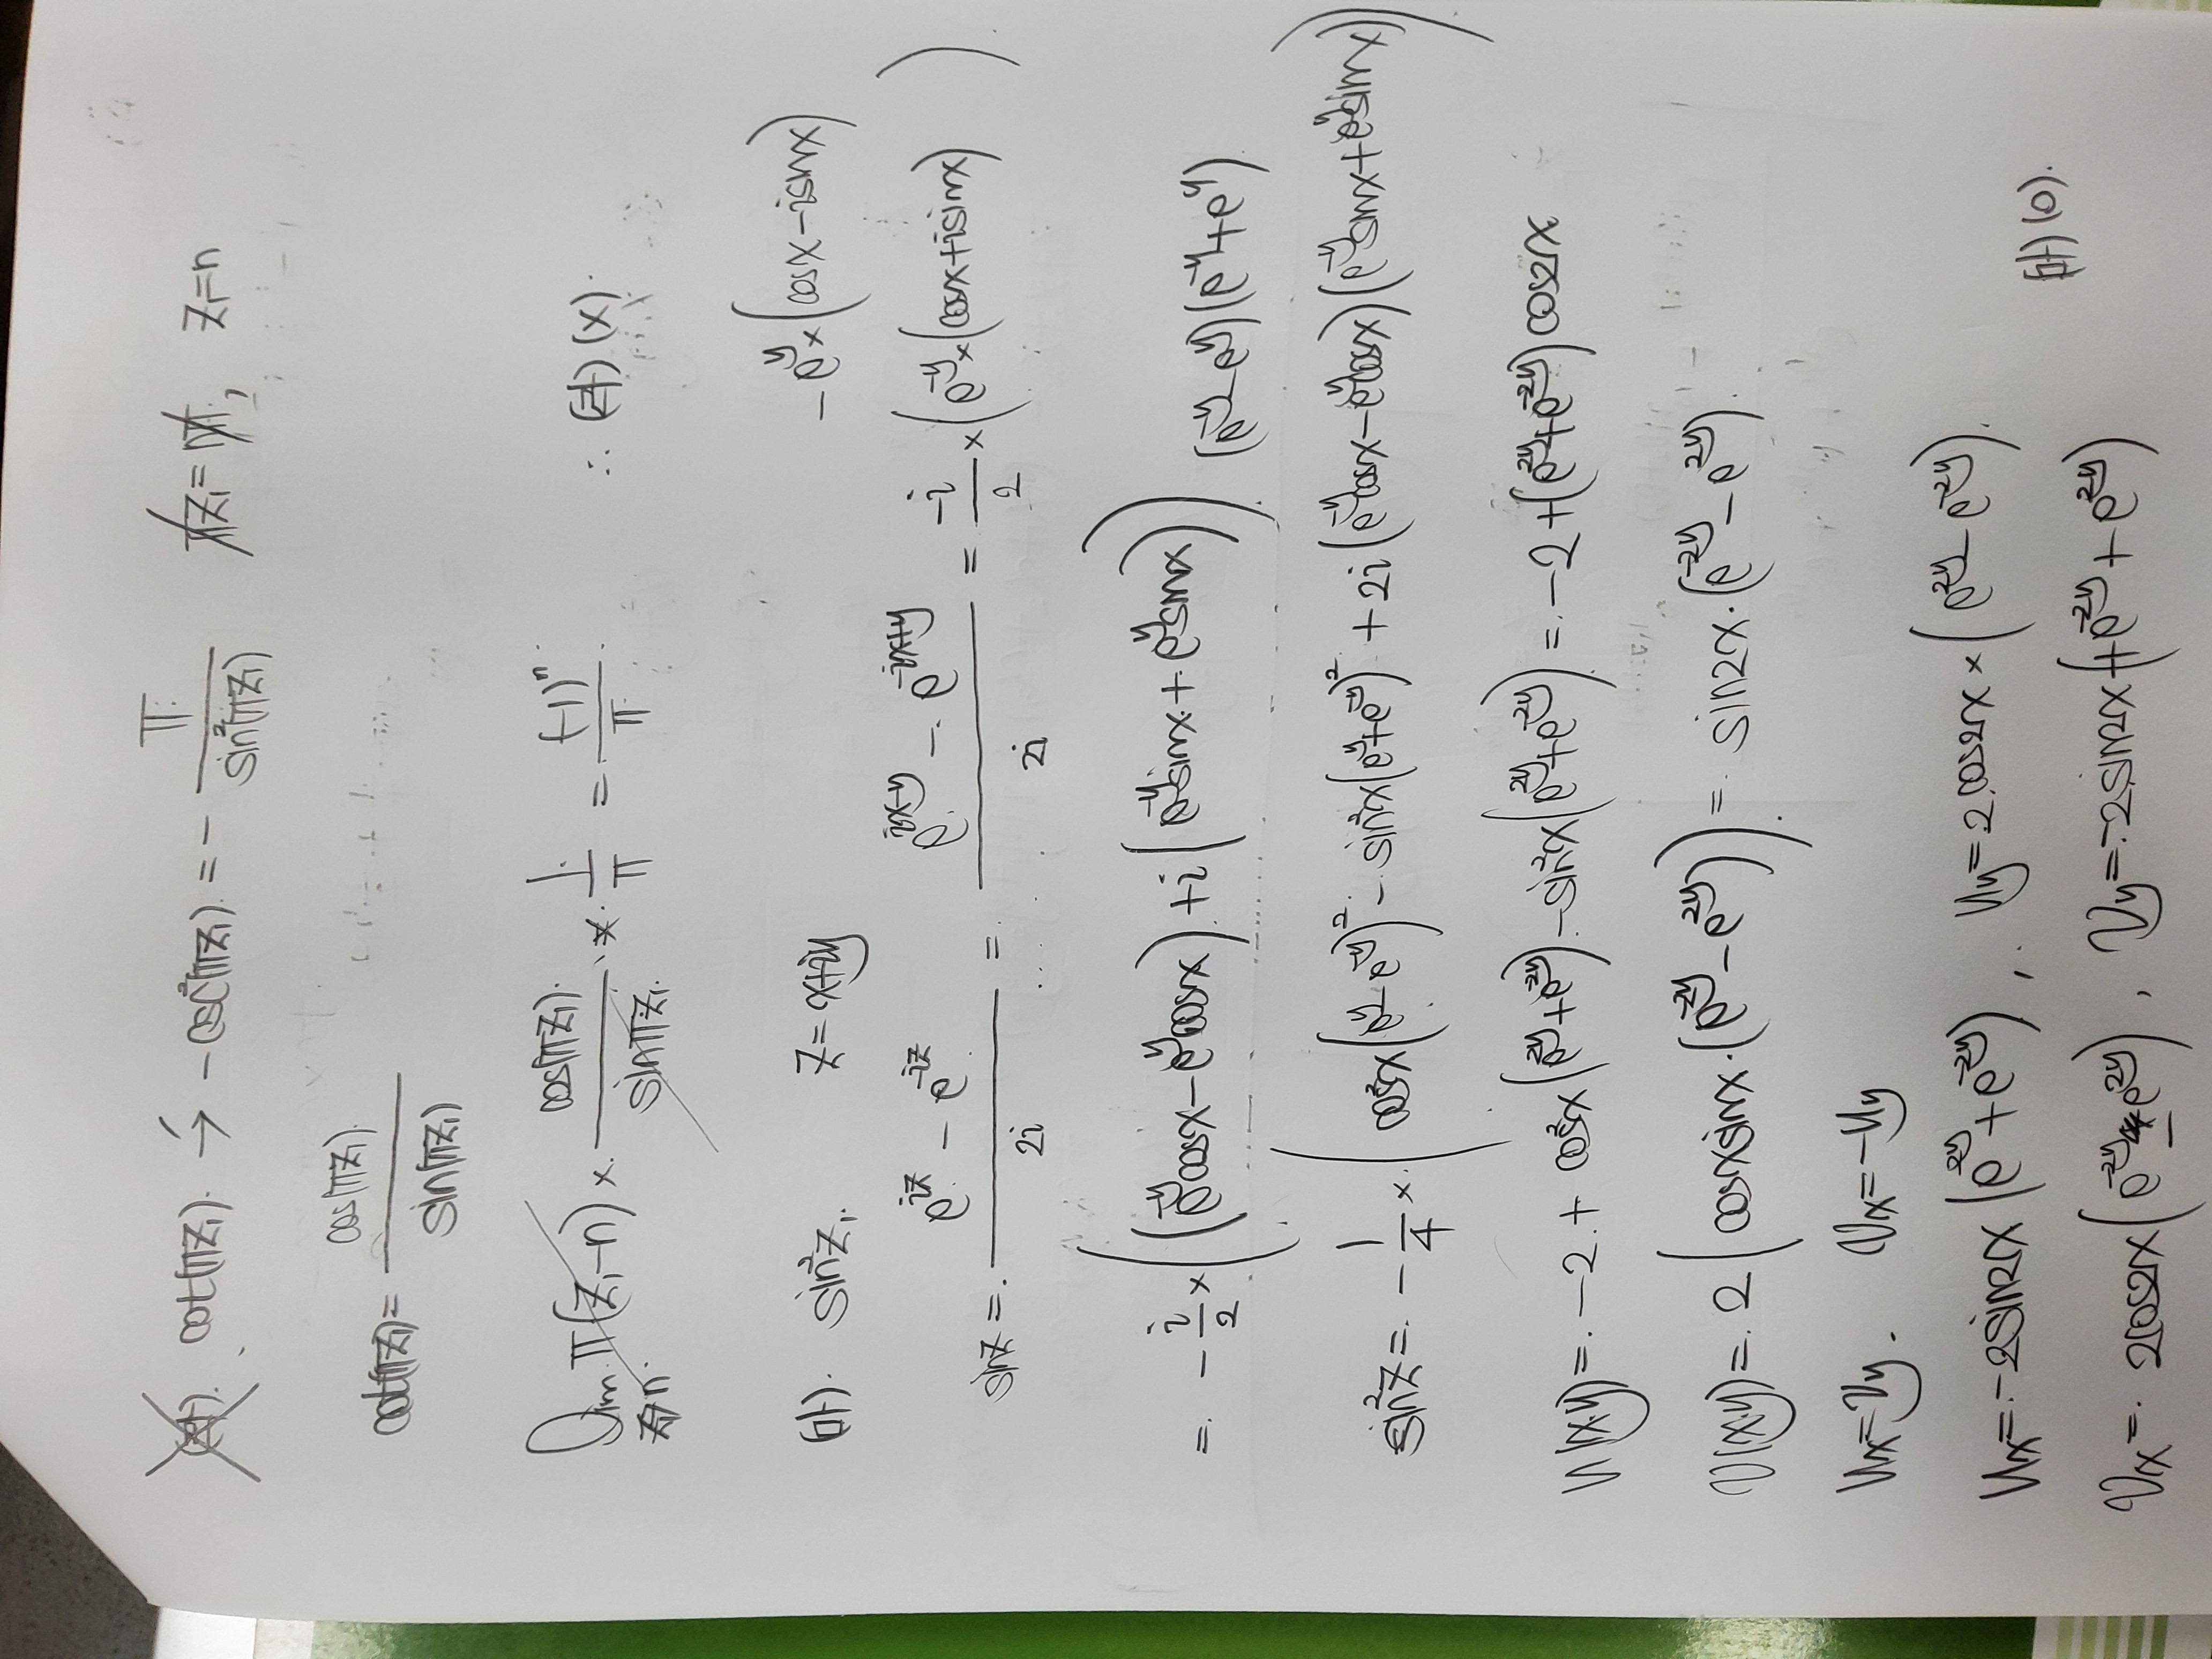 (라). cot(πz). → -csc²(πz). = - π / sin²(πz) πz = π, z=n
cot(πz) = cos(πz). / sin(πz)
lim z→n π(z-n) × cos(πz). / sinπz. × 1/π = (-1)ⁿ / π ∴ (라) (x).
(마). sin²z. z=x+iy
sinz =. (e^{iz} - e^{-iz}) / 2i =. (e^{ix-y} - e^{-ix+y}) / 2i = -i/2 × (e^{-y} × (cosx+isinx) - e^{y} × (cosx-isinx) )
=. -i/2 × ((e^{-y}cosx - e^{y}cosx) + i(e^{-y}sinx + e^{y}sinx)) (e^{-y} - e^{y})(e^{-y} + e^{y}).
sin²z =. -1/4 × (cos²x(e^{y} - e^{-y})² - sin²x(e^{y} + e^{-y})² + 2i(e^{-y}cosx - e^{y}cosx)(e^{-y}sinx + e^{y}sinx))
u(x,y) =. -2 + cos²x(e^{2y} + e^{-2y}) - sin²x(e^{2y} + e^{-2y}) =. -2 + (e^{2y} + e^{-2y})cos2x
v(x,y) =. 2(cosxsinx.(e^{-2y} - e^{2y})) = sin2x.(e^{-2y} - e^{2y}).
ux = vy. vx = -uy
ux = -2sin2x(e^{2y} + e^{-2y}), uy = 2cos2x × (e^{2y} - e^{-2y}).
vx =. 2cos2x(e^{-2y} - e^{2y}), vy =. -2sin2x + (e^{-2y} + e^{2y})
(마) (o).